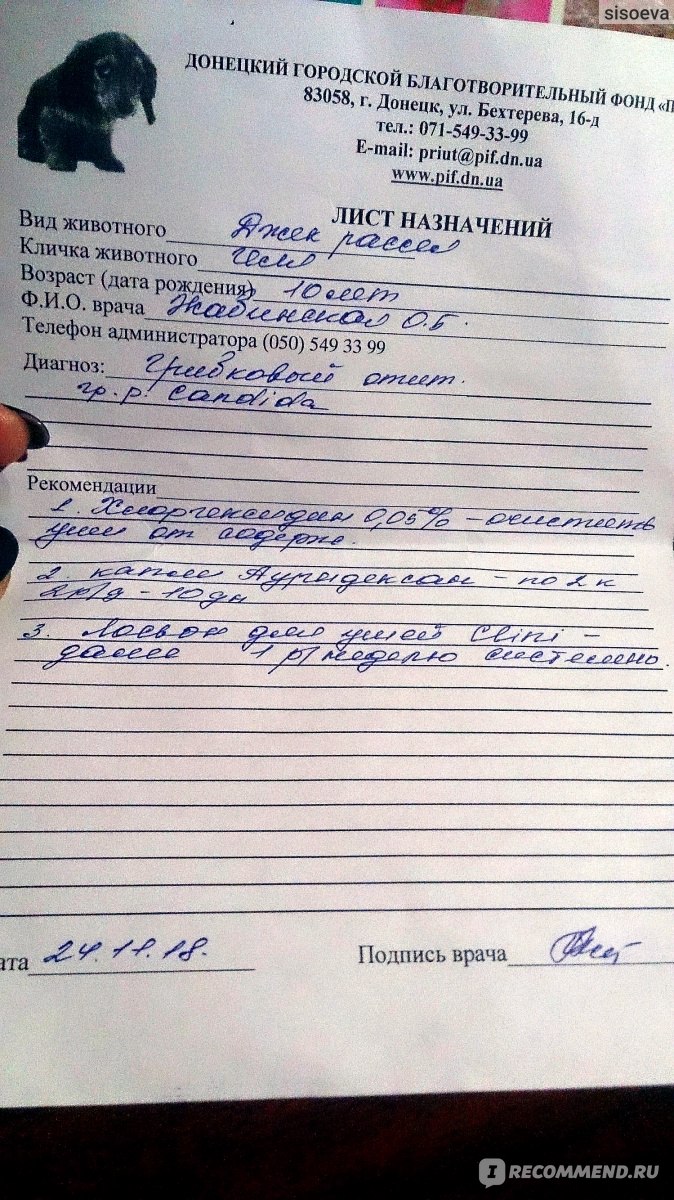 sisoeva
ДОНЕЦКИЙ ГОРОДСКОЙ БЛАГОТВОРИТЕЛЬНЫЙ ФОНД «П
83058, г. Донецк, ул. Бехтерева, 16-д
тел.: 071-549-33-99
E-mail: priut@pif.dn.ua
www.pif.dn.ua
ЛИСТ НАЗНАЧЕНИЙ
Вид животного Джек рассел
Кличка животного
Возраст (дата рождения) 10 лет
Ф.И.О. врача Жабинская О.Б.
Телефон администратора (050) 549 33 99
Диагноз: Грибковый отит.
гр. р. Candida
Рекомендации
1. Хлоргексидин 0,05% – очистить
уши от содерж.
2. капли Ауридексан – по 2 к
2 р/д – 10 дн
3. Лосьон для ушей Clini –
далее 1 р/неделю системно.
ата 24.11.18.
Подпись врача
IRECOMMEND.RU